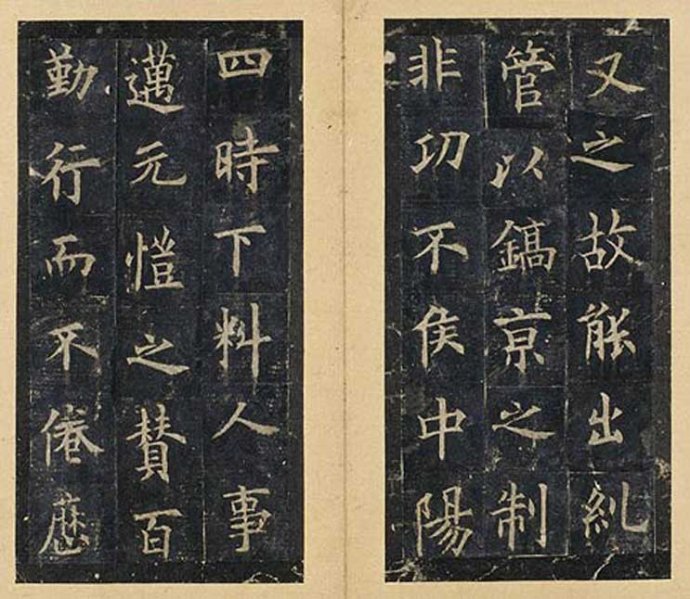 又之故能出糺
管以鎬京之制
非功不侯中陽
四時下料人事
邁元愷之賛百
勤行而不倦應